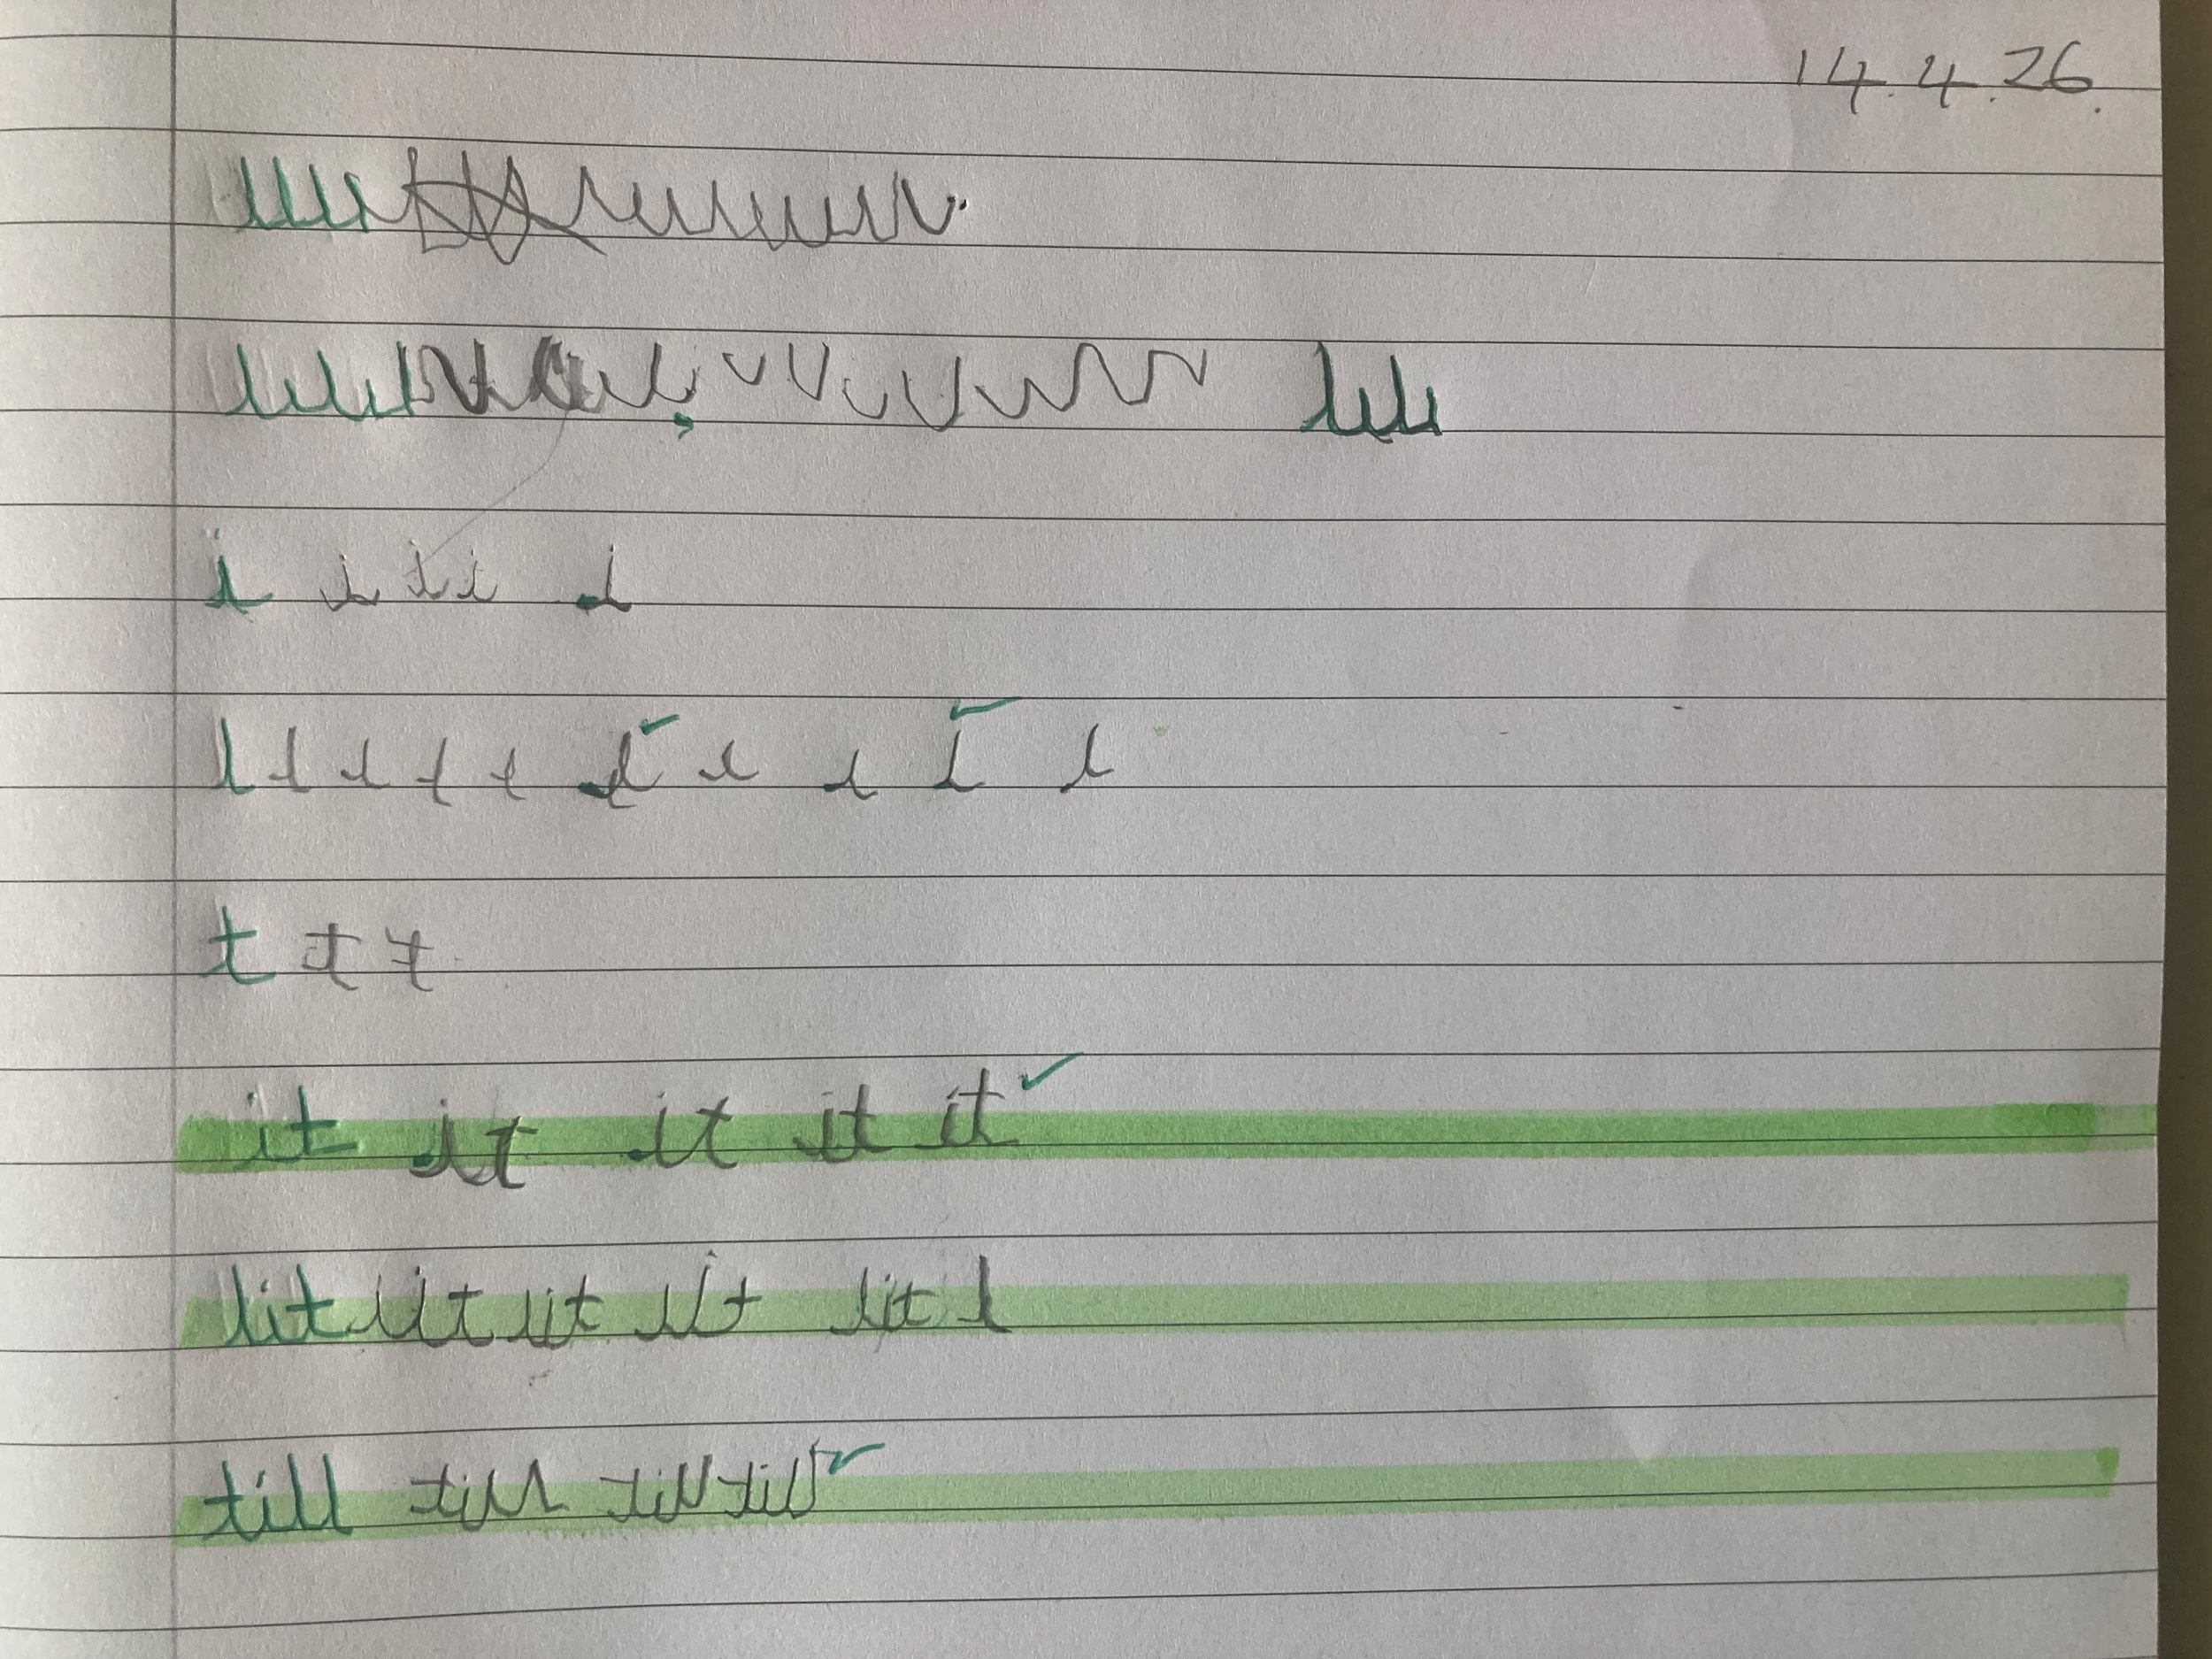 14.4.26.
i i i i i
l l l l l l l l l l
t t t
it it it it it
lit lit lit lit lit l
till till till till